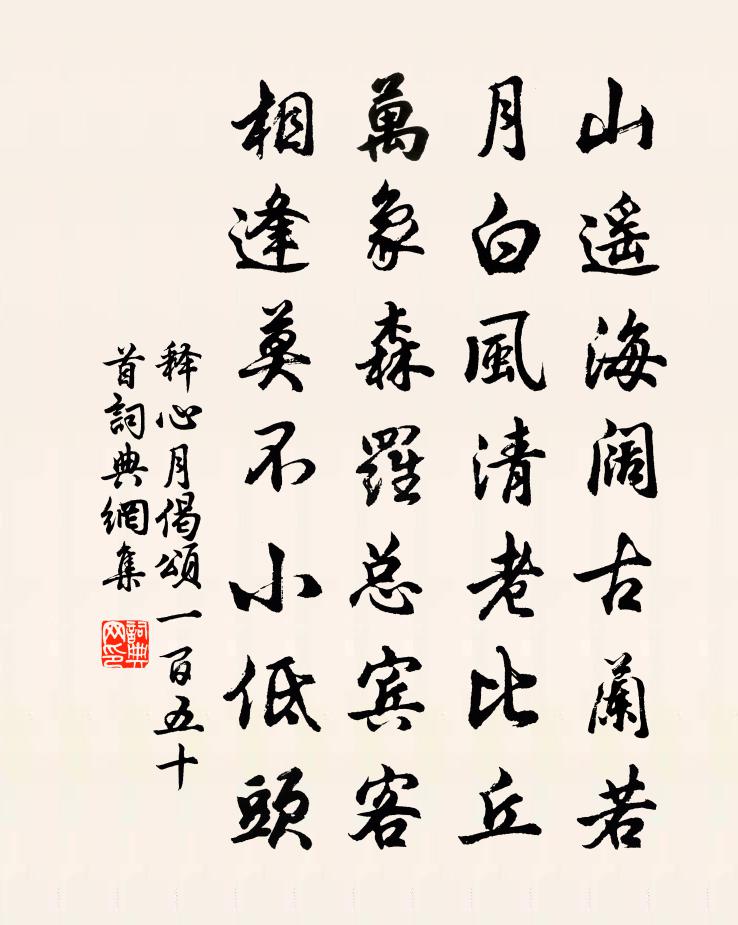 山遥海阔古蘭若
月白風清老比丘
萬象森羅总宾客
相逢莫不小低頭
释心月偈頌一百五十
首詞典網集
詞典网印